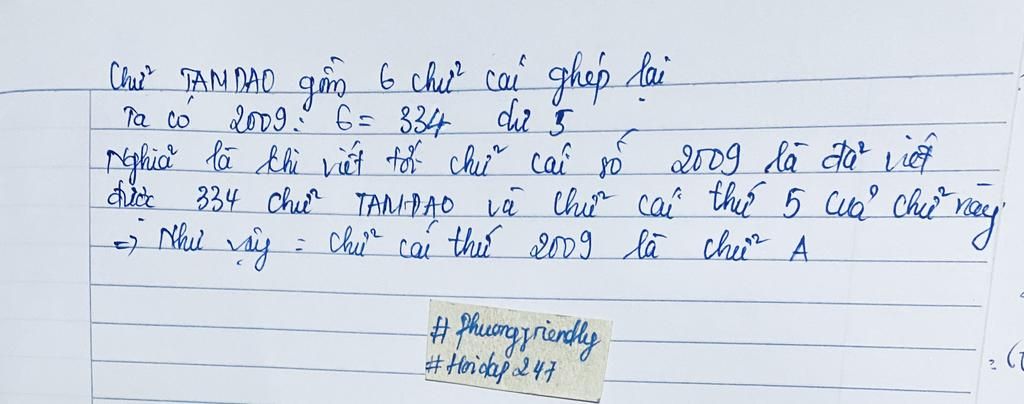 Chữ TAMDAO gồm 6 chữ cái ghép lại
Ta có 2009 : 6 = 334 dư 5
Nghĩa là khi viết tới chữ cái số 2009 là đã viết
được 334 chữ TAMDAO và chữ cái thứ 5 của chữ này
=> Như vậy = chữ cái thứ 2009 là chữ A
# Phuongfriendly
# Hoidap247